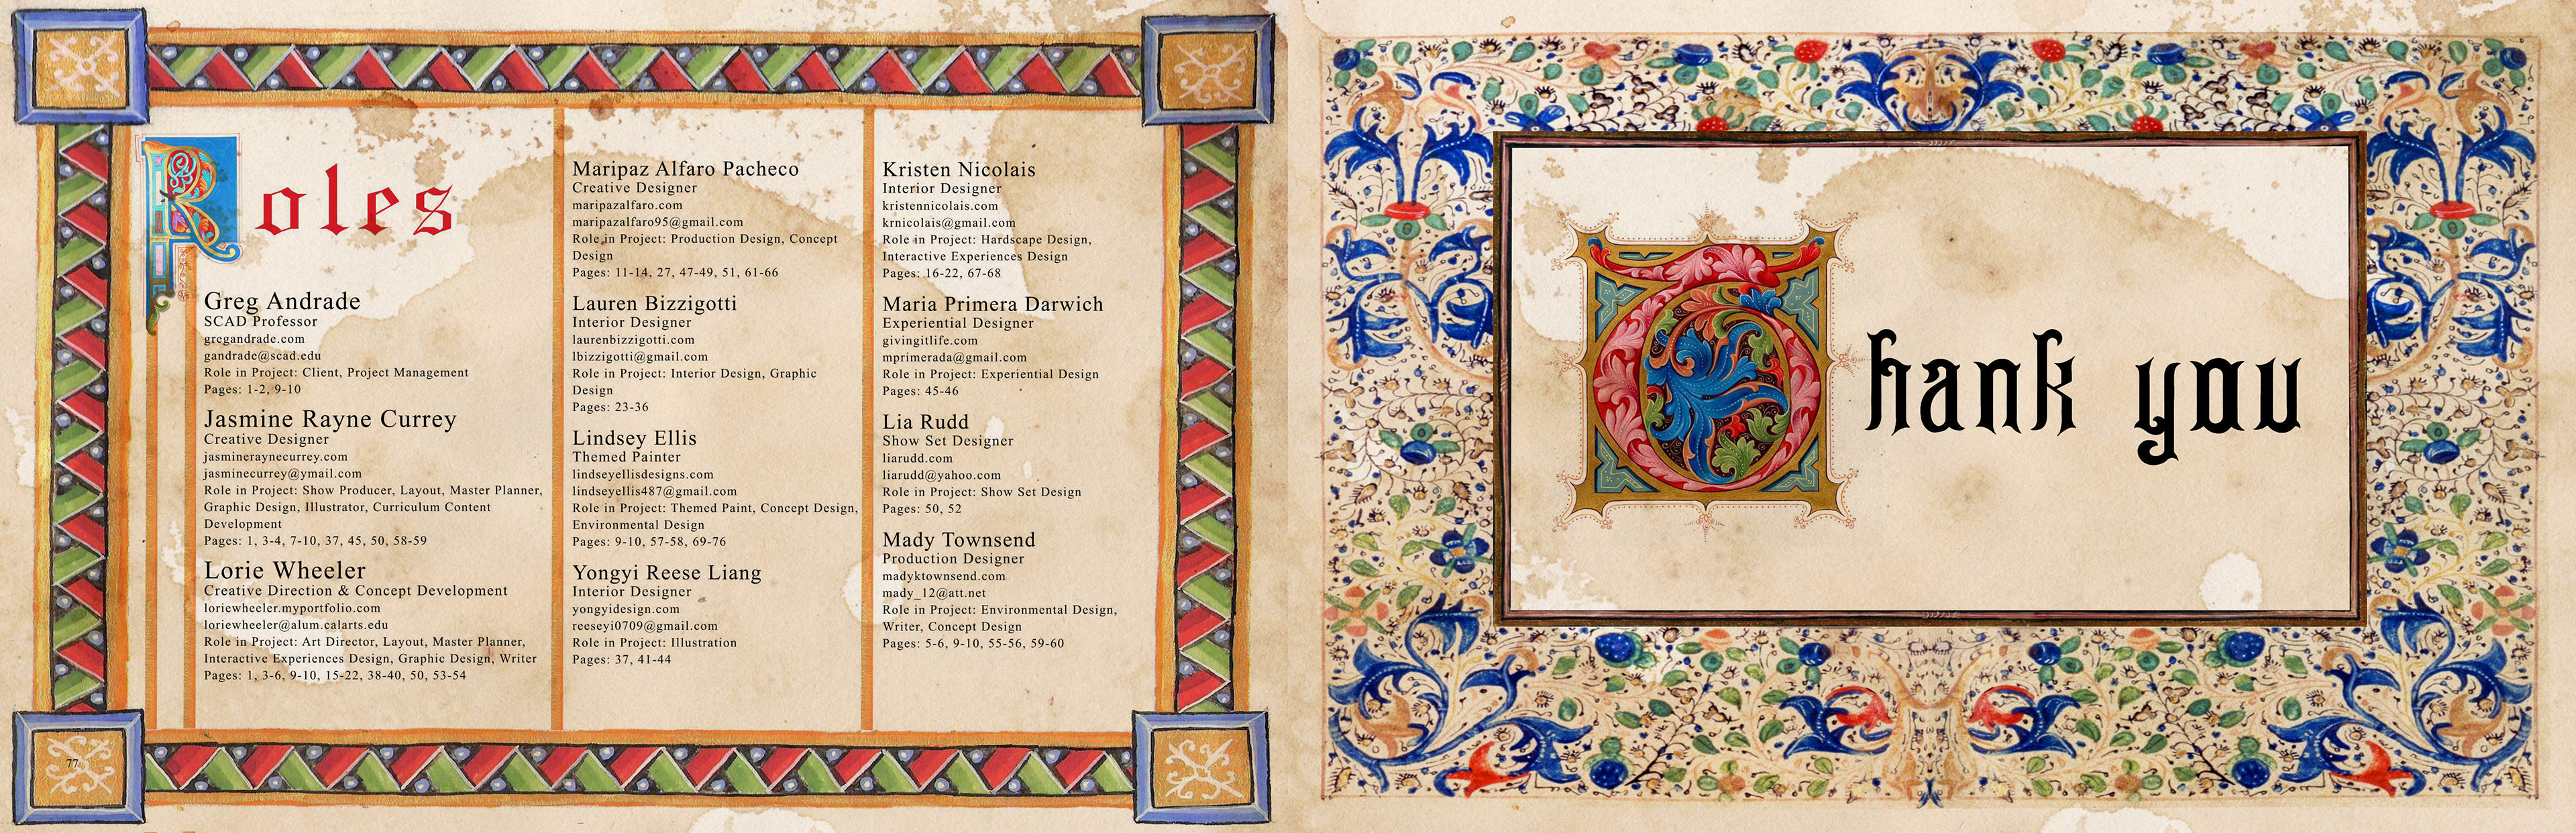 Roles
Greg Andrade
SCAD Professor
gregandrade.com
gandrade@scad.edu
Role in Project: Client, Project Management
Pages: 1-2, 9-10
Jasmine Rayne Currey
Creative Designer
jasmineraynecurrey.com
jasminecurrey@ymail.com
Role in Project: Show Producer, Layout, Master Planner,
Graphic Design, Illustrator, Curriculum Content
Development
Pages: 1, 3-4, 7-10, 37, 45, 50, 58-59
Lorie Wheeler
Creative Direction & Concept Development
loriewheeler.myportfolio.com
loriewheeler@alum.calarts.edu
Role in Project: Art Director, Layout, Master Planner,
Interactive Experiences Design, Graphic Design, Writer
Pages: 1, 3-6, 9-10, 15-22, 38-40, 50, 53-54
Maripaz Alfaro Pacheco
Creative Designer
maripazalfaro.com
maripazalfaro95@gmail.com
Role in Project: Production Design, Concept
Design
Pages: 11-14, 27, 47-49, 51, 61-66
Lauren Bizzigotti
Interior Designer
laurenbizzigotti.com
lbizzigotti@gmail.com
Role in Project: Interior Design, Graphic
Design
Pages: 23-36
Lindsey Ellis
Themed Painter
lindseyellisdesigns.com
lindseyellis487@gmail.com
Role in Project: Themed Paint, Concept Design,
Environmental Design
Pages: 9-10, 57-58, 69-76
Yongyi Reese Liang
Interior Designer
yongyidesign.com
reeseyi0709@gmail.com
Role in Project: Illustration
Pages: 37, 41-44
Kristen Nicolais
Interior Designer
kristennicolais.com
krnicolais@gmail.com
Role in Project: Hardscape Design,
Interactive Experiences Design
Pages: 16-22, 67-68
Maria Primera Darwich
Experiential Designer
givingitlife.com
mprimerada@gmail.com
Role in Project: Experiential Design
Pages: 45-46
Lia Rudd
Show Set Designer
liarudd.com
liarudd@yahoo.com
Role in Project: Show Set Design
Pages: 50, 52
Mady Townsend
Production Designer
madyktownsend.com
mady_12@att.net
Role in Project: Environmental Design,
Writer, Concept Design
Pages: 5-6, 9-10, 55-56, 59-60
77
Thank you